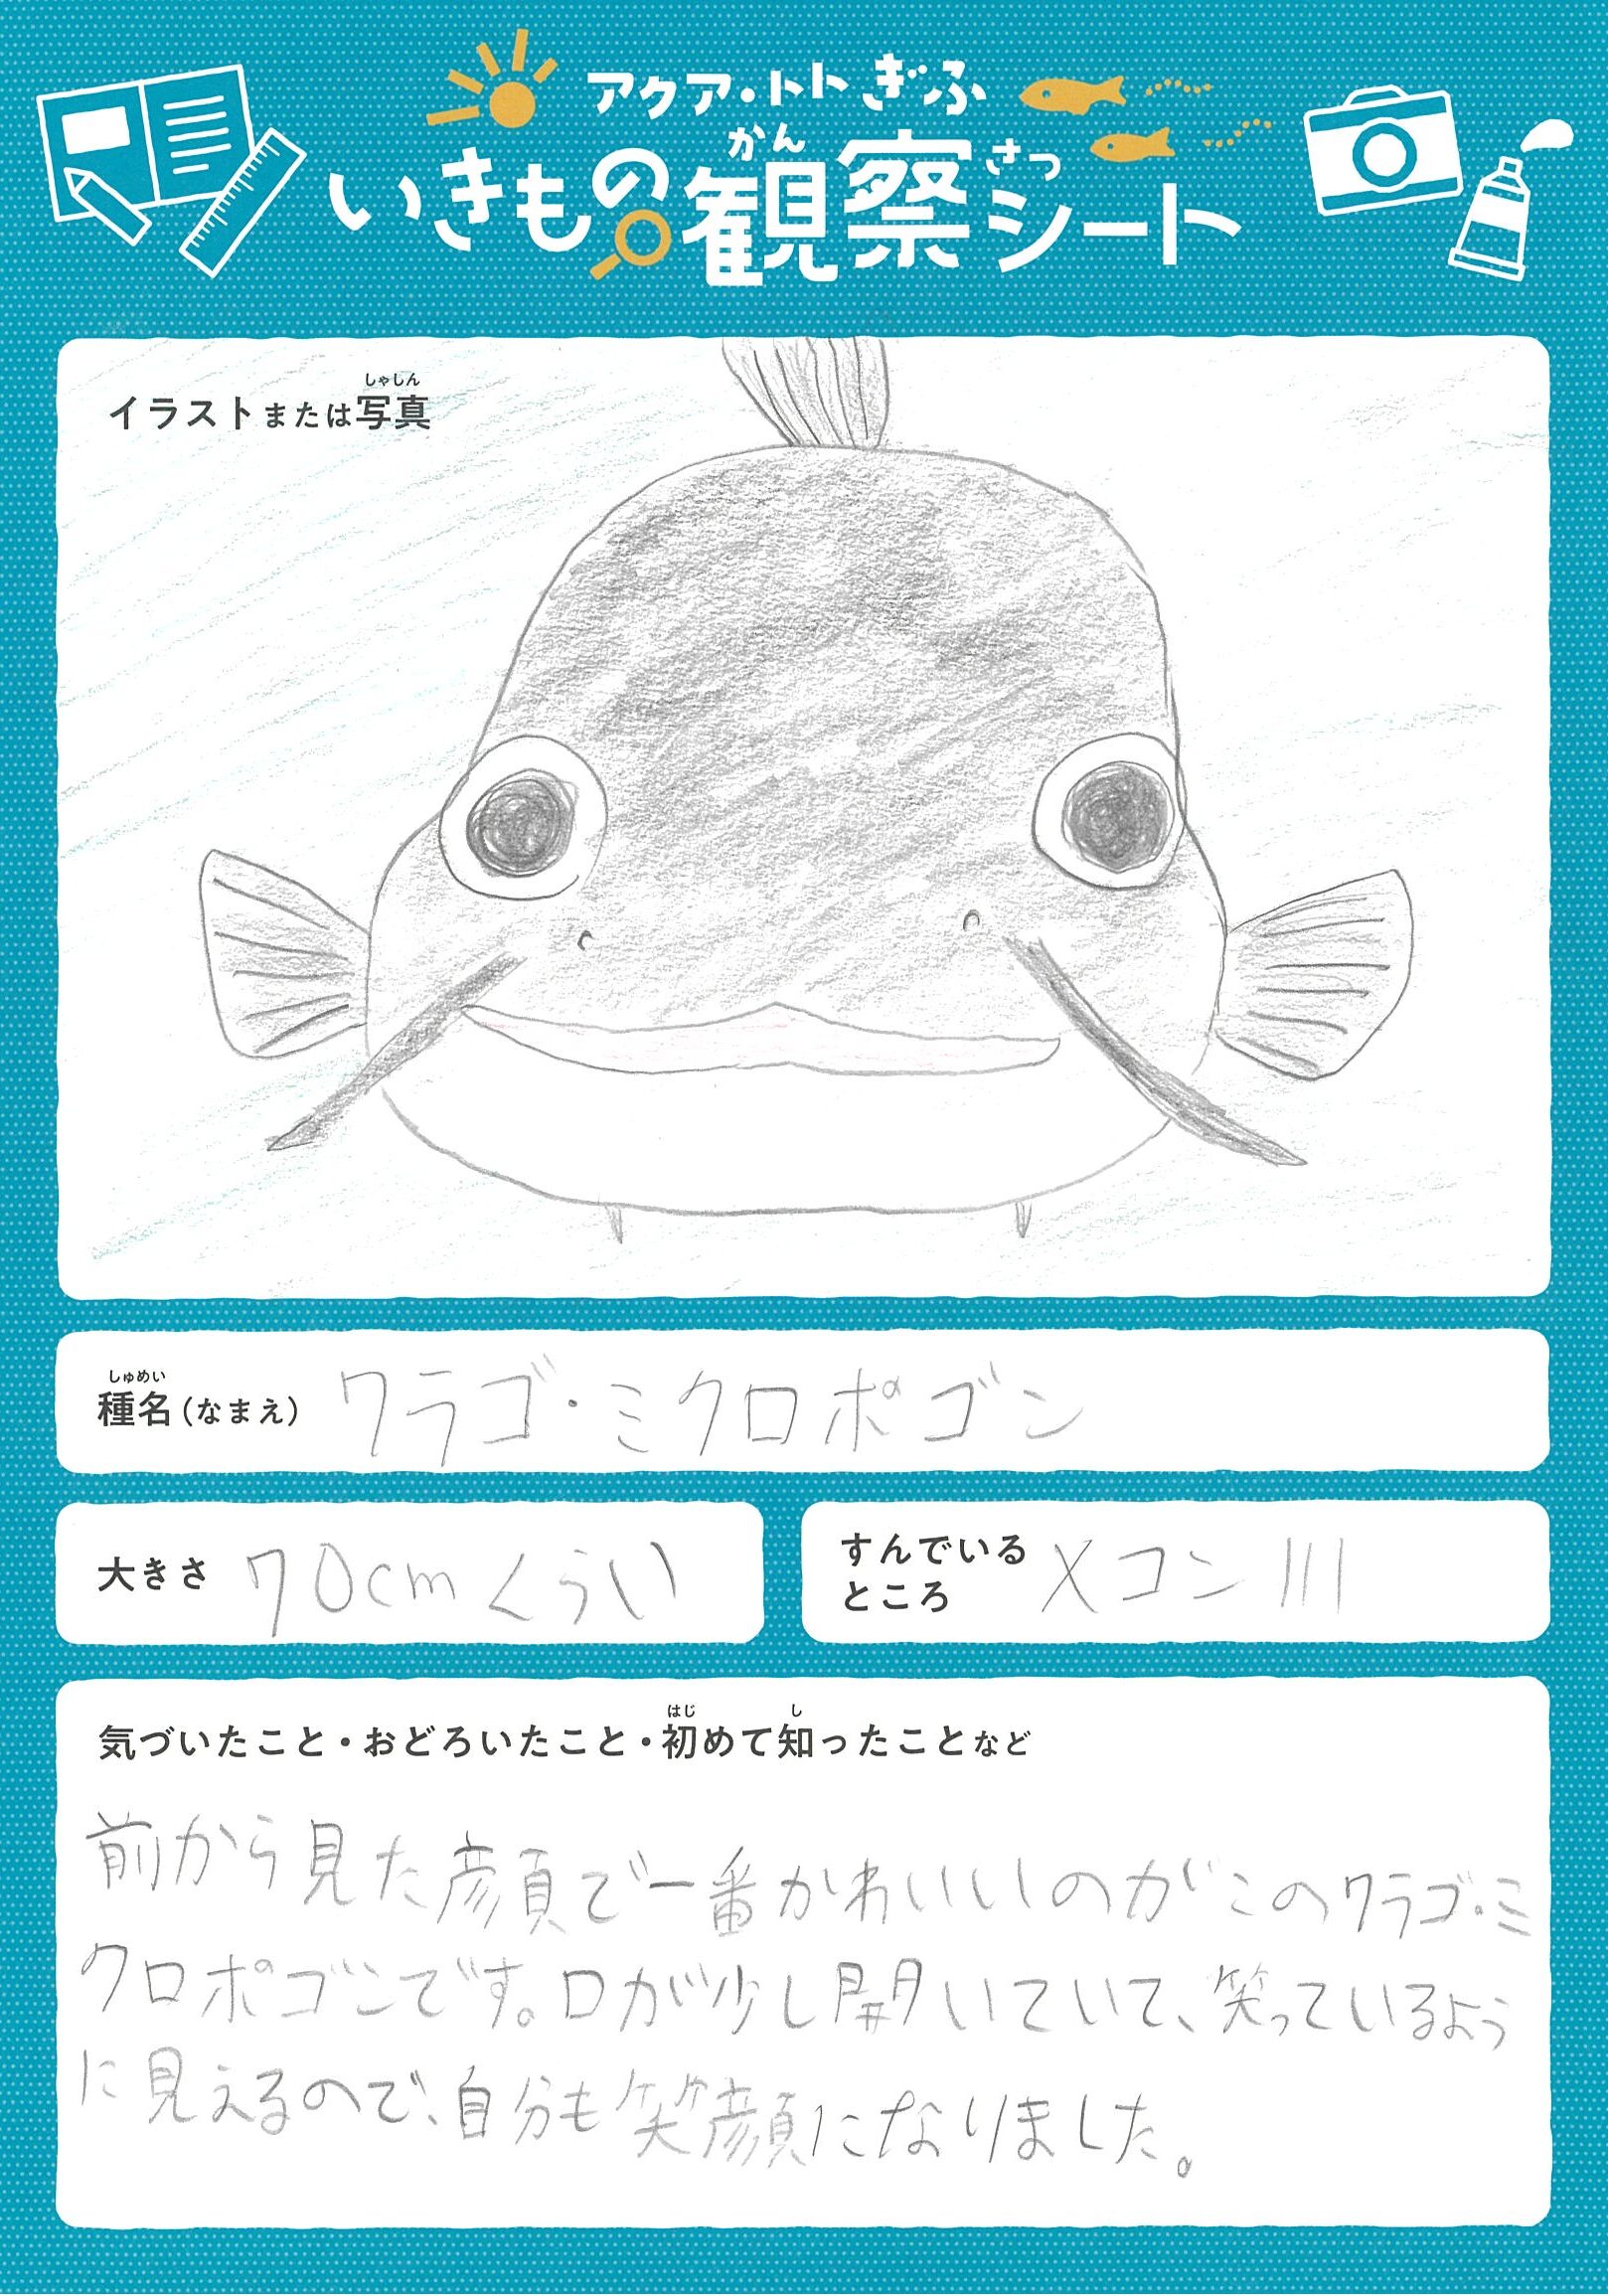 アクア・トトぎふ
かん さつ
いきもの観察シート
しゃしん
イラストまたは写真
しゅめい
種名(なまえ) ワラゴ・ミクロポゴン
大きさ 70cmくらい
すんでいる
ところ メコン川
はじ し
気づいたこと・おどろいたこと・初めて知ったことなど
前から見た顔で一番かわいいのがこのワラゴ・ミ
クロポゴンです。口が少し開いていて、笑っているよう
に見えるので、自分も笑顔になりました。